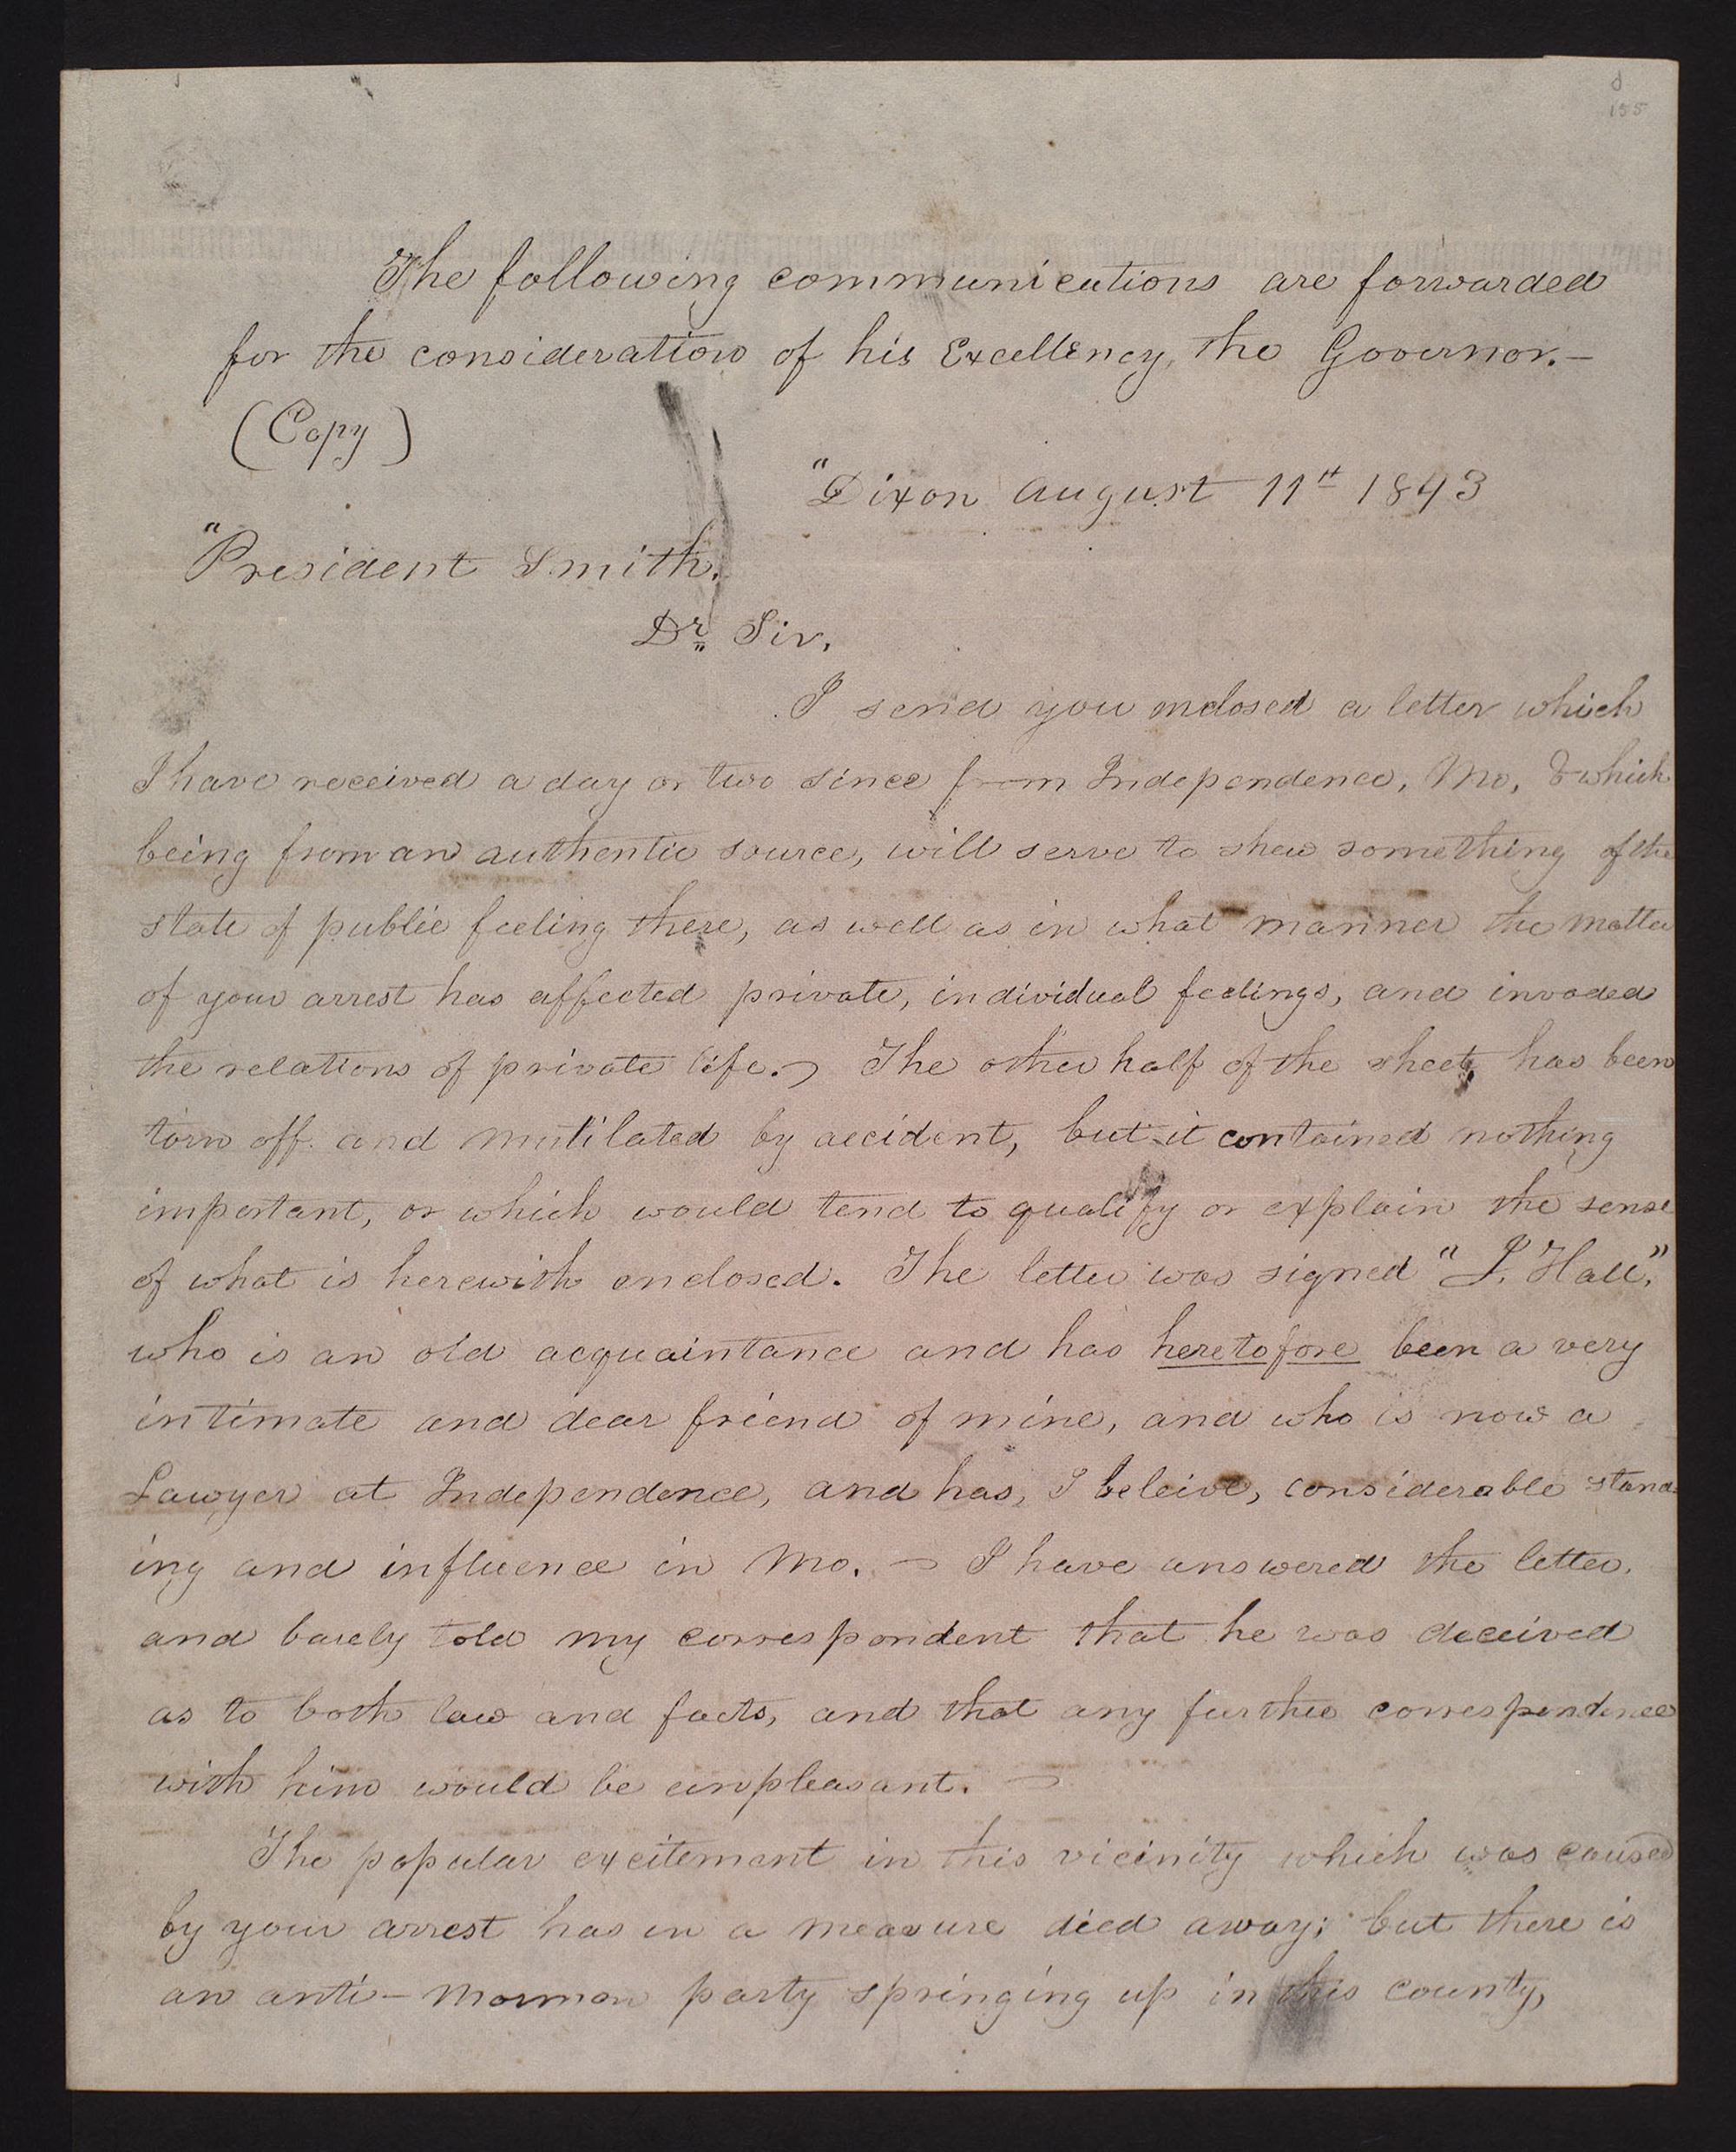 155
The following communications are forwarded
for the consideration of his Excellency, the Governor.—
(Copy)
"Dixon August 11th 1843
"President Smith.
Dr. Sir,
I send you enclosed a letter which
I have received a day or two since from Independence, Mo, & which
being from an authentic source, will serve to shew something of the
state of public feeling there, as well as in what manner the matter
of your arrest has affected private, individual feelings, and invaded
the relations of private life. The other half of the sheet has been
torn off and mutilated by accident, but it contained nothing
important, or which would tend to qualify or explain the sense
of what is herewith enclosed. The letter was signed "J. Hall,"
who is an old acquaintance and has heretofore been a very
intimate and dear friend of mine, and who is now a
Lawyer at Independence, and has, I beleive, considerable stand-
ing and influence in Mo. — I have answered the letter,
and barely told my correspondent that he was deceived
as to both law and facts, and that any further correspondence
with him would be unpleasant. —
The popular excitement in this vicinity which was caused
by your arrest has in a measure died away; but there is
an anti-Mormon party springing up in this county,